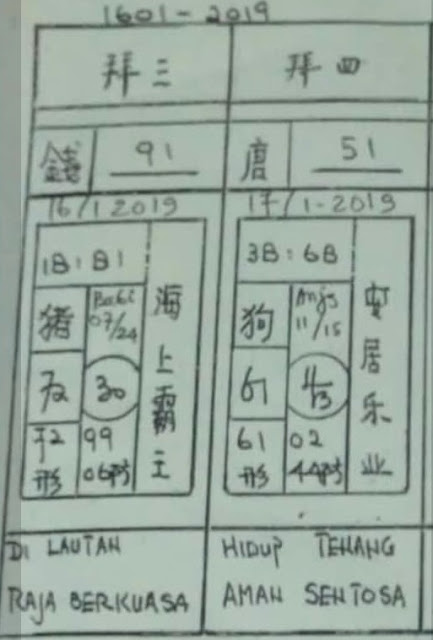 1601-2019
拜三
拜四
錢 91
唐 51
16/1 2019
17/1-2019
1B:B1
猪 Babi
07/24
72 30
72 99
形 06
海上霸王
3B:6B
狗 Anjg
11/15
61 4/13
61 02
形 44
居乐业
DI LAUTAN
RAJA BERKUASA
HIDUP TENANG
AMAN SENTOSA